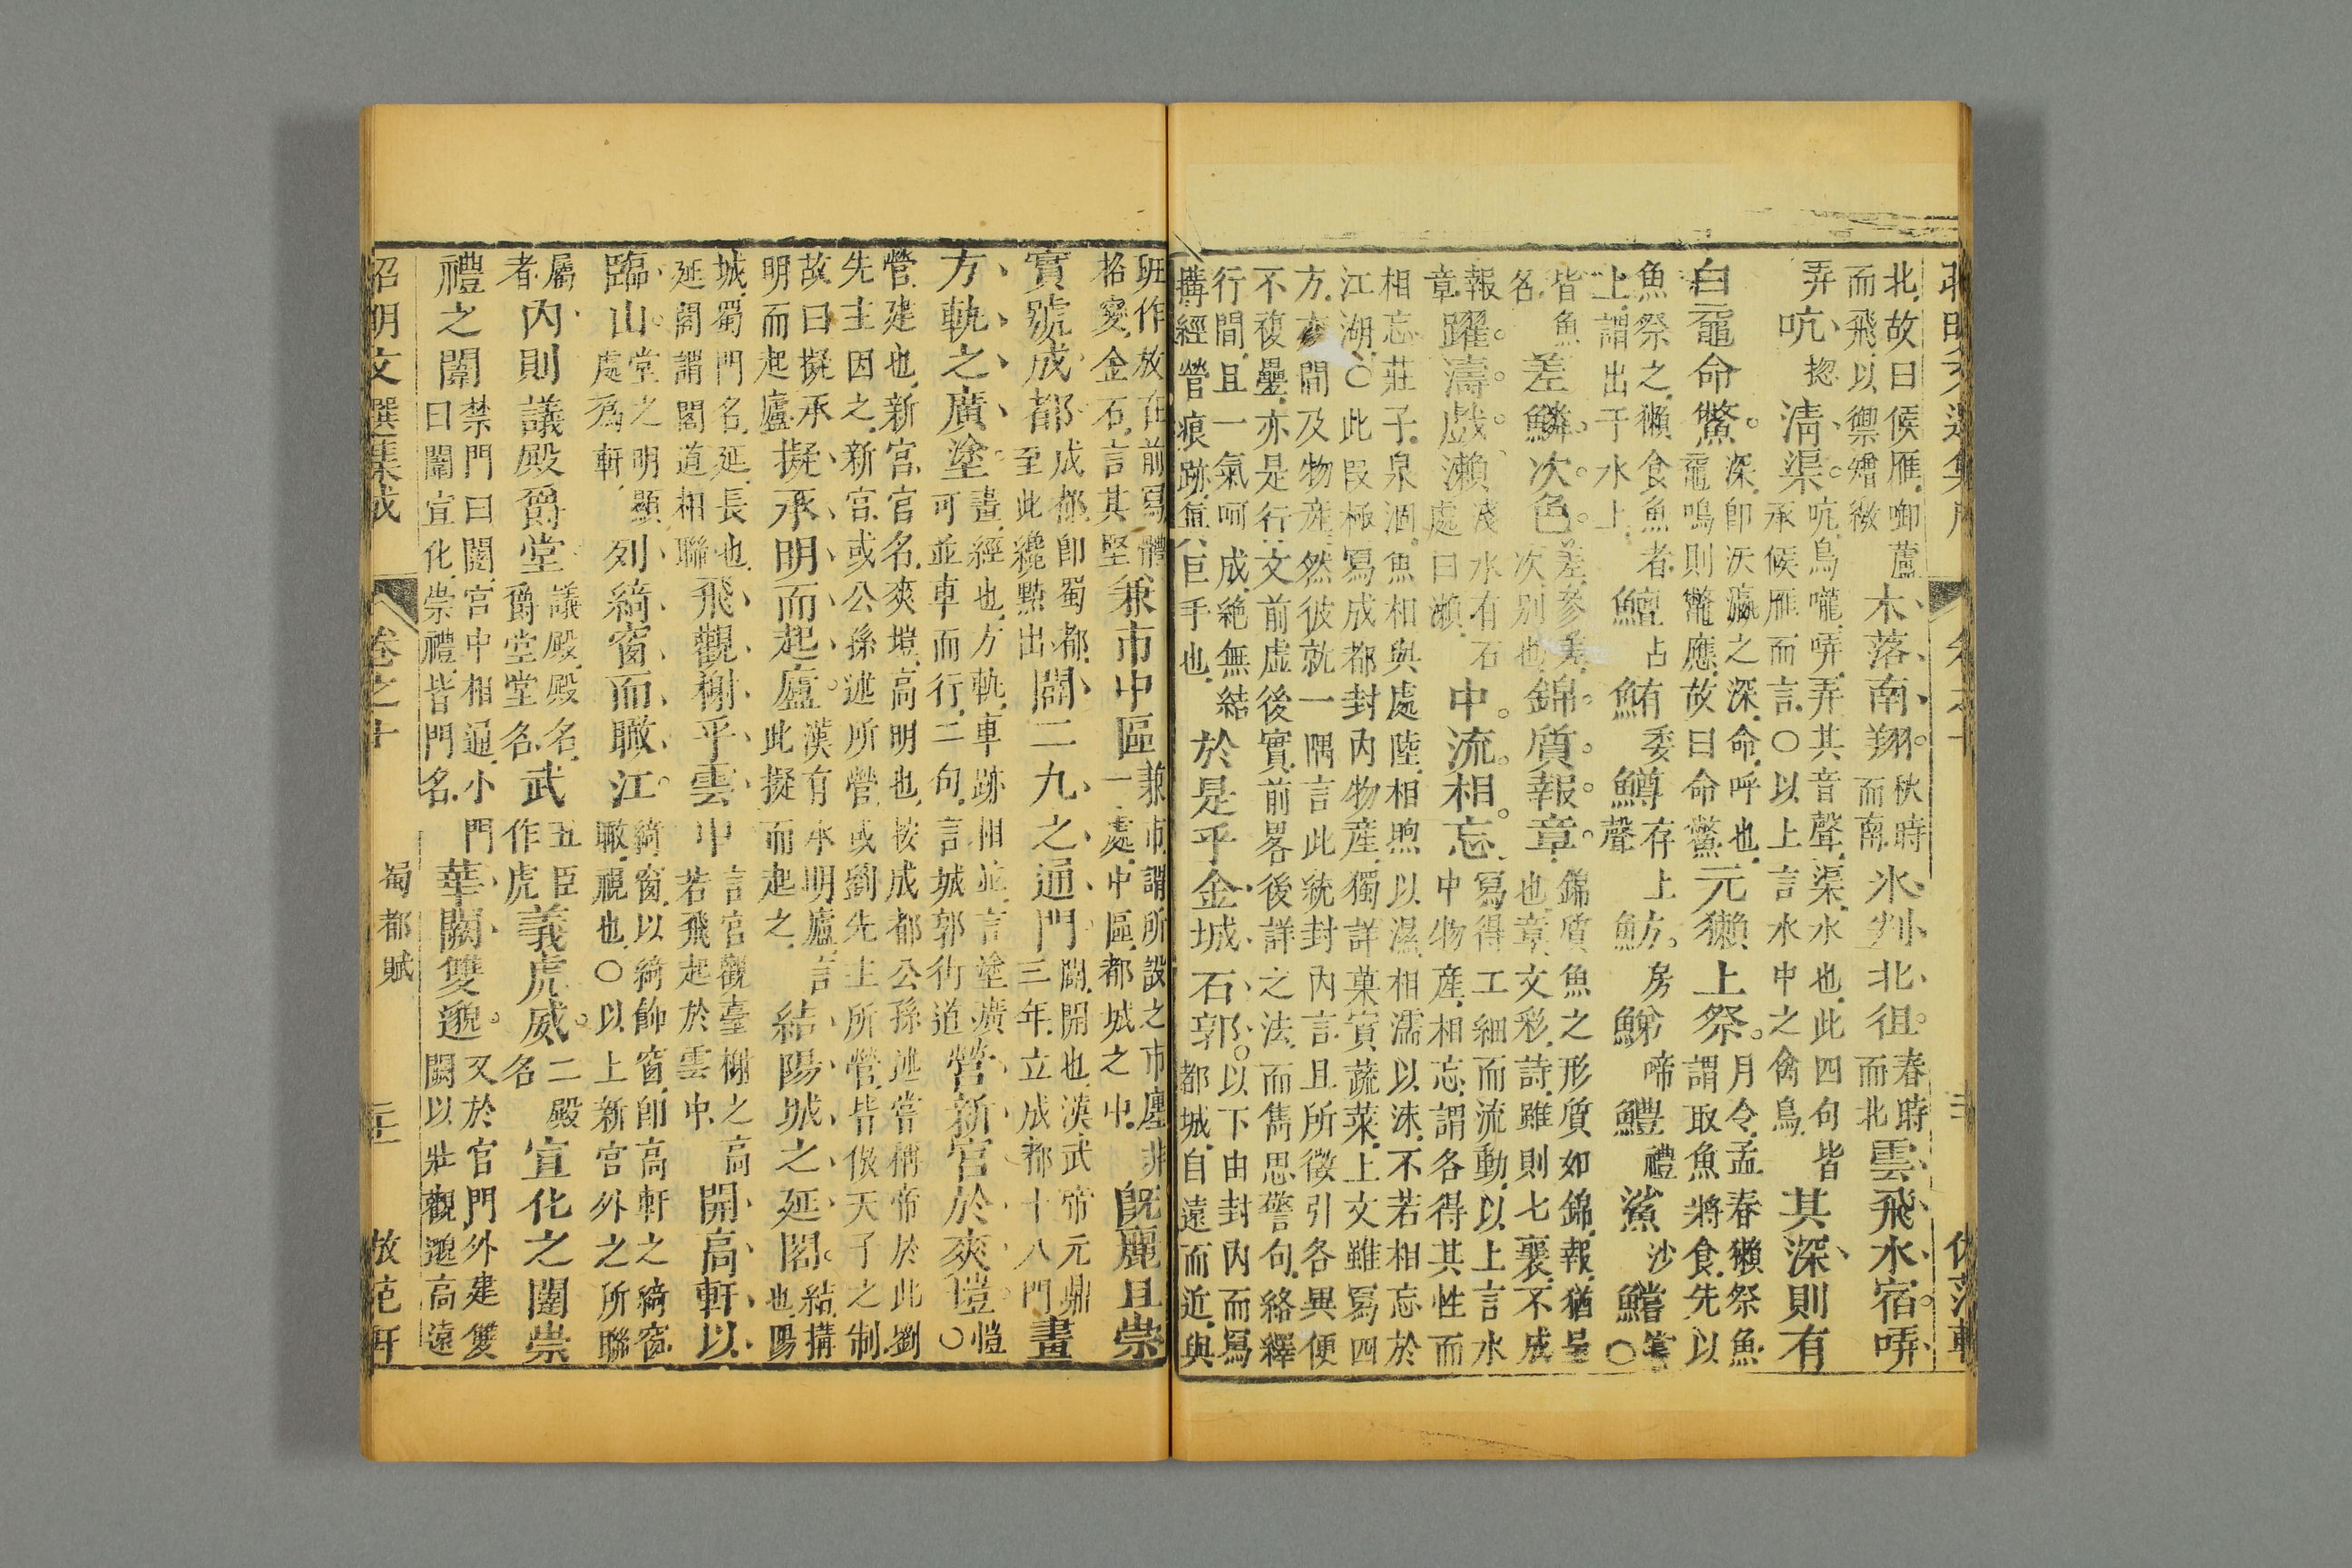 北故曰候雁啣蘆而飛以禦矰繳木落南翔秋時而南氷判北徂春時而北雲飛水宿哢
弄吭揔淸渠吭鳥嚨哢弄其音聲渠水也此四句皆承候雁而言〇以上言水中之禽鳥其深則有
白黿命鱉深卽沃瀛之深命呼也黿鳴則鱉應故曰命鱉元獺上祭月令孟春獺祭魚謂取魚將食先以
魚祭之獺食魚者上謂出于水上鱣占鮪委鱒存上聲魴房鮷啼鱧禮鯊沙鱨〇
皆魚名差鱗次色差參差次別也錦質報章錦質魚之形質如錦報猶也章文彩詩雖則七襄不成
報章躍濤戲瀨淺水有石處曰瀨中流相忘寫得工細而流動以上言水中物產相忘謂各得其性而
相忘莊子泉涸魚相與處陸相呴以濕相濡以沫不若相忘於江湖〇此段極寫成都封內物產獨詳菓實蔬菜上文雖寫四
方開及物產然彼就一隅言此統封內言且所徵引各異便不複疊亦是行文前虛後實前畧後詳之法而雋思警句絡繹
行間且一氣呵成絶無結搆經營痕跡眞巨手也於是乎金城石郭以下由封內而寫都城自遠而近與
班作放在前寫體格變金石言其堅兼市中區兼市謂所設之市廛非一處中區都城之中旣麗且崇
實號成都成都卽蜀都至此纔點出闢二九之通門闢開也漢武帝元鼎三年立成都十八門畫
方軌之廣塗畫經也方軌車跡相並言塗廣可並車而行二句言城郭街道營新宮於爽塏塏〇
營建也新宮宮名爽塏高明也按成都公孫述嘗稱帝於此劉先主因之新宮或公孫述所營或劉先主所營皆倣天子之制
故曰擬承明而起廬擬承明而起廬漢有承明廬言此擬而起之結陽城之延閣結搆也陽
城蜀門名延長也延閣謂閣道相聯飛觀榭乎雲中言宮觀臺榭之高若飛起於雲中開高軒以
臨山堂之明顯處爲軒列綺窗而瞰江綺窗以綺飾窗卽高軒之綺窗瞰視也〇以上新宮外之所聯
屬者內則議殿爵堂議殿殿名爵堂堂名武五臣作虎義虎威二殿名宣化之闥崇
禮之闈禁門曰闥宮中相通小門曰闈宣化崇禮皆門名華闕雙邈又於宮門外建雙闕以壯觀邈高遠
昭明文選集成 卷之十 蜀都賦 三十 倣范軒